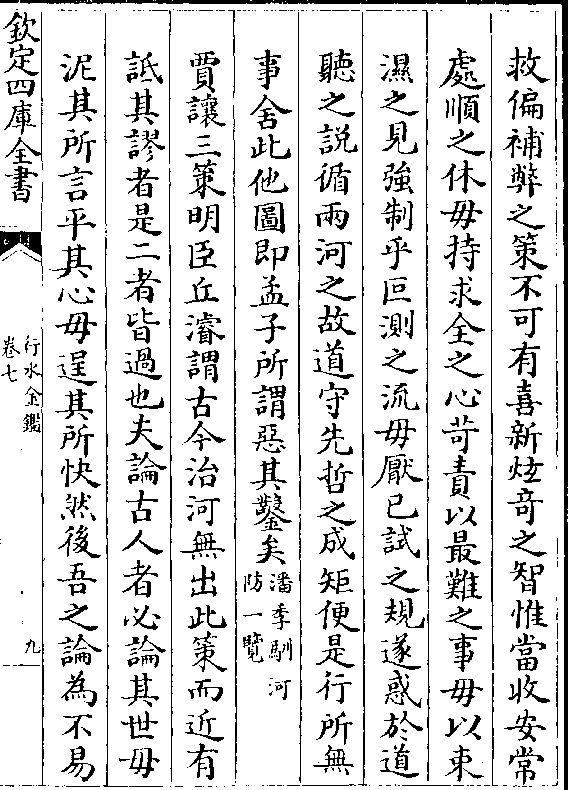 救偏補弊之策不可有喜新炫奇之智惟當收安常
處順之休毋持求全之心苛責以最難之事毋以束
濕之見強制乎叵測之流毋厭已試之規遂惑於道
聽之説循兩河之故道守先哲之成矩便是行所無
事舍此他圖即孟子所謂惡其鑿矣潘季馴河防一覽
賈讓三策明臣丘濬謂古今治河無出此策而近有
詆其謬者是二者皆過也夫論古人者必論其世毋
泥其所言平其心毋逞其所快然後吾之論為不易
欽定四庫全書
行水金鑑
卷七
九